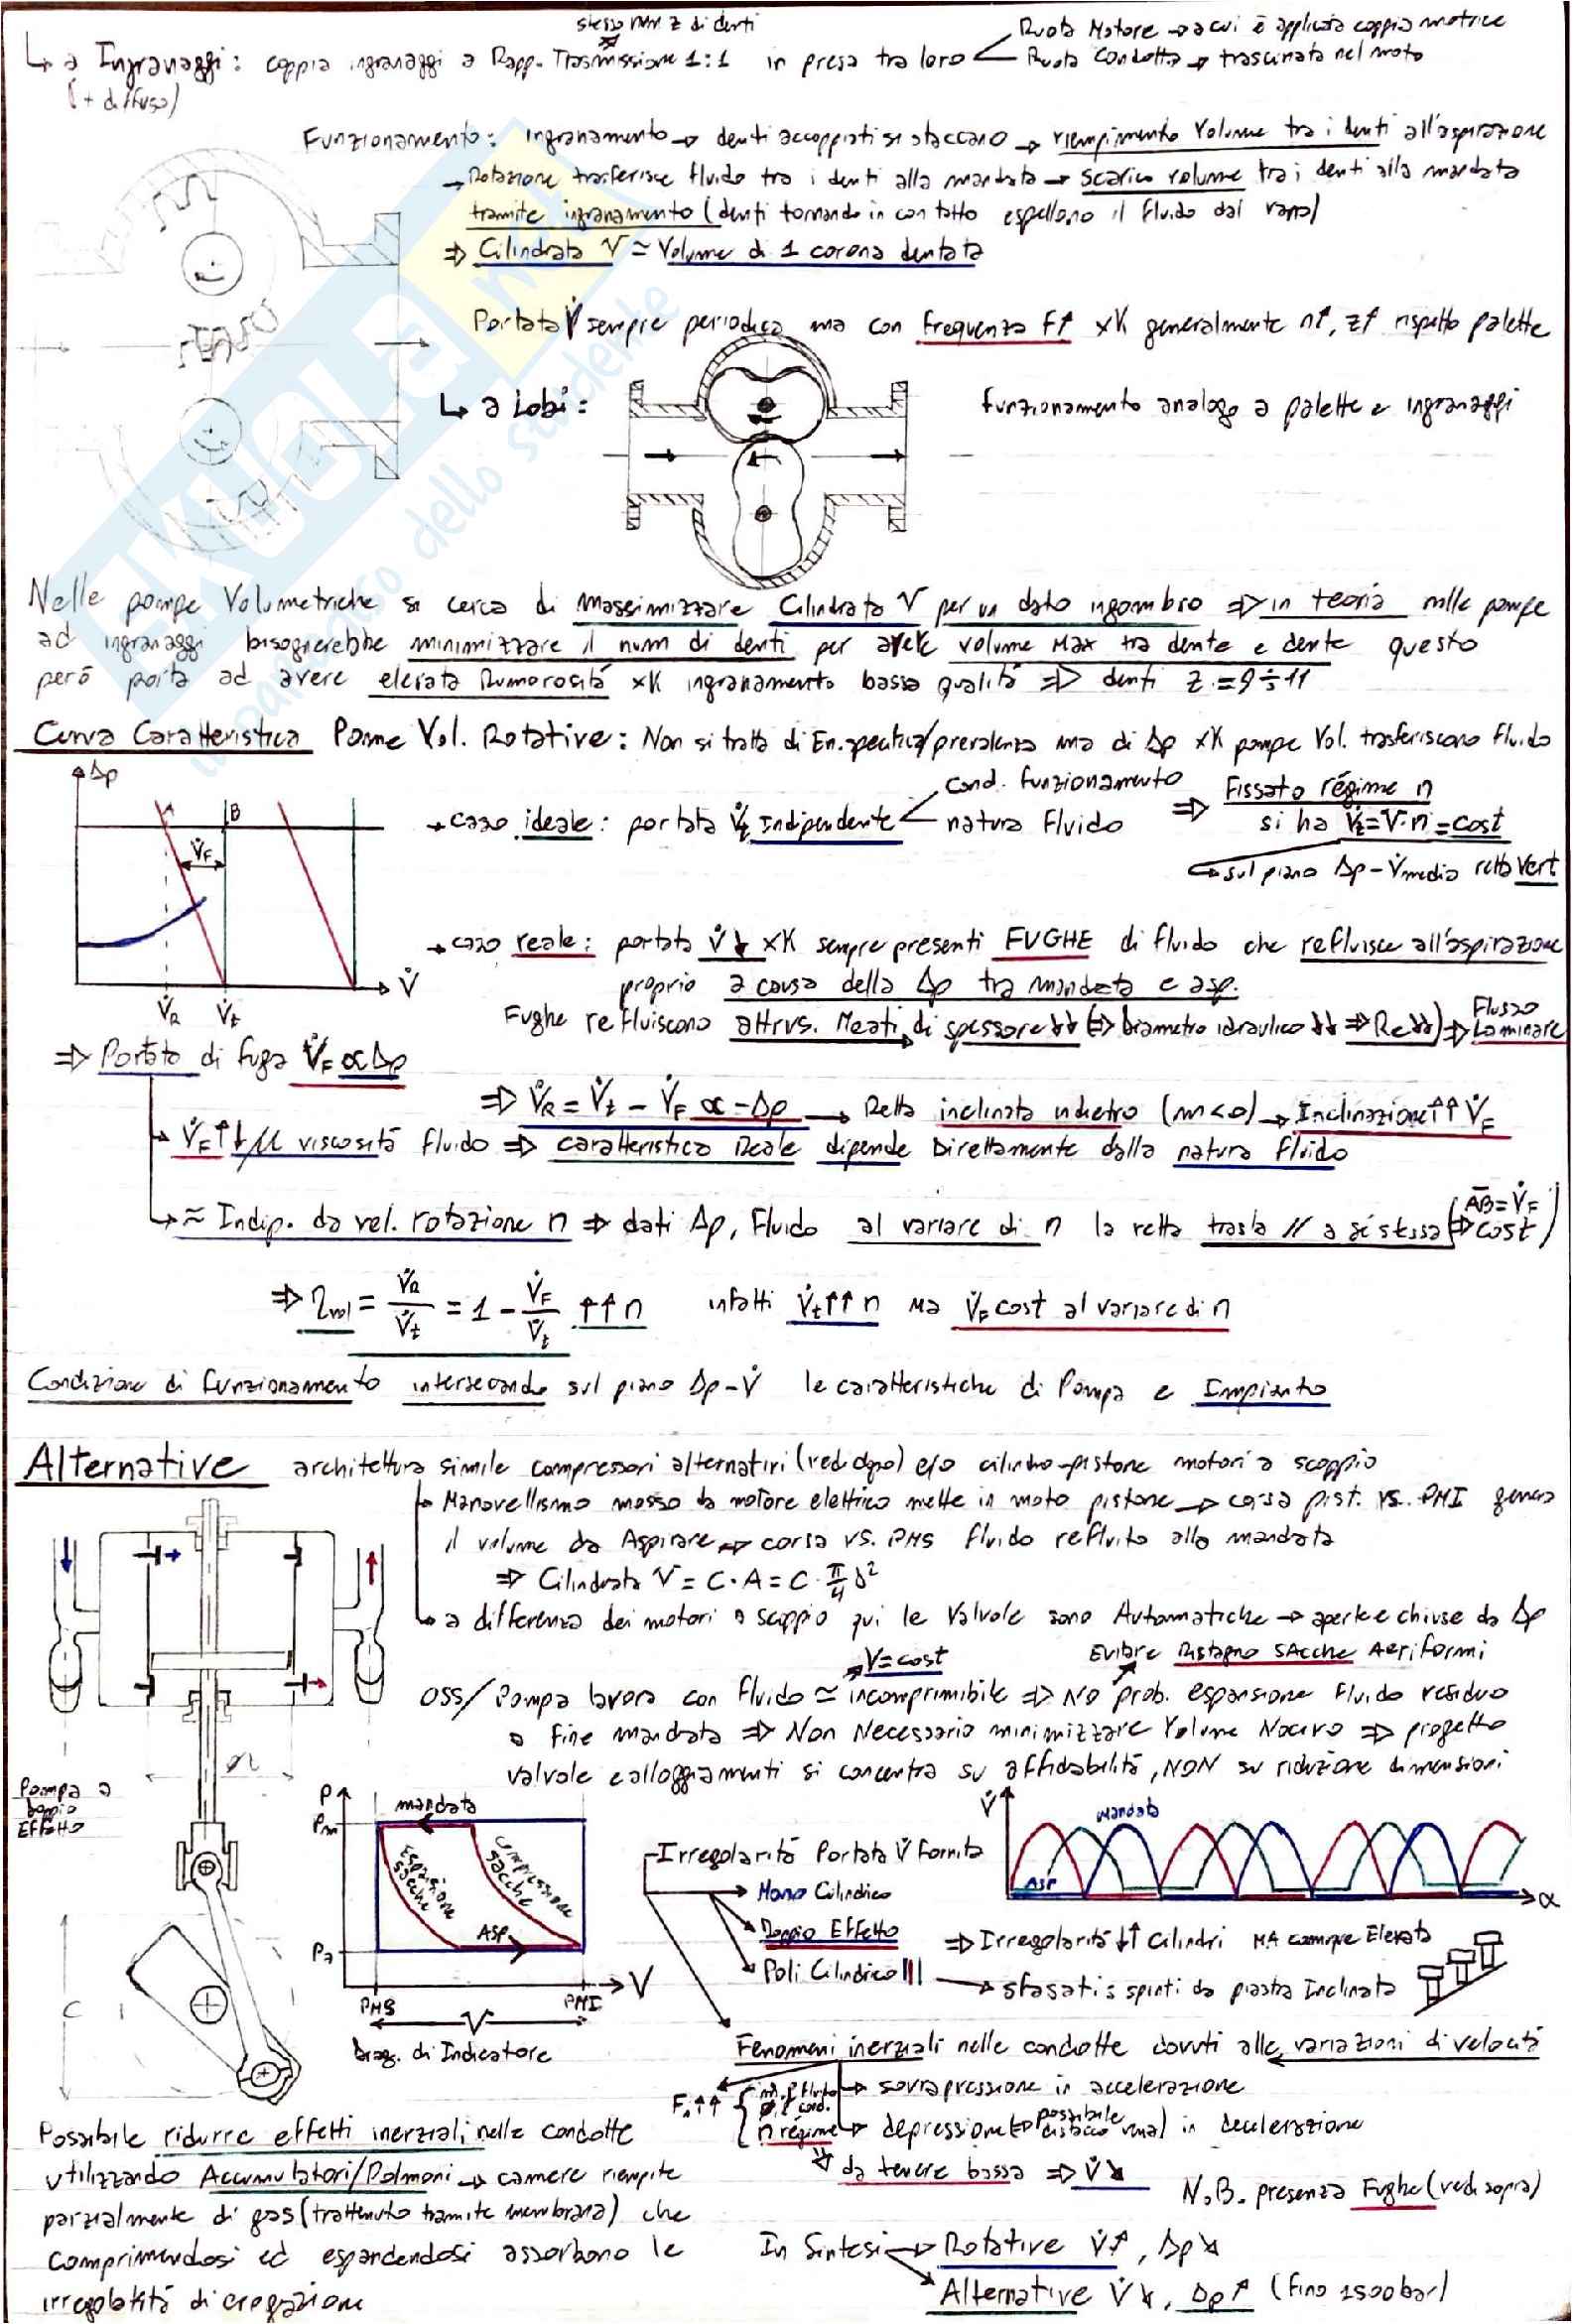 stesso num. z di denti
↳ a Ingranaggi: coppia ingranaggi a Rapp. Trasmissione 1:1 in presa tra loro
Ruota Motore → a cui è applicata coppia motrice
Ruota Condotta → trascinata nel moto
(+ diffuso)
Funzionamento: ingranamento → denti accoppiati si staccano → riempimento Volume tra i denti all'aspirazione
→ Rotazione trasferisce fluido tra i denti alla mandata → scarico volume tra i denti alla mandata
tramite ingranamento (denti tornando in contatto espellono il fluido dal vano)
⇒ Cilindrata V ≃ Volume di 1 corona dentata
Portata V̇ sempre periodica ma con frequenza F↑ xK generalmente n↑, z↑ rispetto palette
↳ a Lobi:
funzionamento analogo a palette e ingranaggi
Nelle pompe Volumetriche si cerca di massimizzare Cilindrata V per un dato ingombro ⇒ in teoria nelle pompe
ad ingranaggi bisognerebbe minimizzare il num di denti per avere volume Max tra dente e dente questo
però porta ad avere elevata Rumorosità xK ingranamento bassa qualità ⇒ denti z = 9÷11
Curva Caratteristica Pome Vol. Rotative: Non si tratta di En. specifica/prevalenza ma di Δp xK pompe Vol. trasferiscono fluido
Δp
A
B
V̇F
V̇
V̇R V̇t
→ caso ideale: portata V̇t Indipendente
cond. funzionamento
natura fluido
⇒ Fissato régime n
si ha V̇t = V·n = cost
↳ sul piano Δp - V̇medio retta vert
→ caso reale: portata V̇↓ xK sempre presenti FUGHE di fluido che refluisce all'aspirazione
proprio a causa della Δp tra mandata e asp.
Fughe refluiscono attrvs. Meati di spessore↓↓ (⇒ Diametro idraulico ↓↓ ⇒ Re↓↓) ⇒ Flusso Laminare
⇒ Portata di fuga V̇F ∝ Δp
⇒ V̇R = V̇t - V̇F ∝ -Δp → Retta inclinata indietro (m<0) → Inclinazione ↑↑ V̇F
↳ V̇F↑↓μ viscosità fluido ⇒ caratteristica Reale dipende Direttamente dalla natura fluido
↳ ≈ Indip. da vel. rotazione n ⇒ dati Δp, Fluido al variare di n la retta trasla // a sé stessa (AB = V̇F ⇒ cost)
⇒ ηvol = V̇R/V̇t = 1 - V̇F/V̇t ↑↑n infatti V̇t↑↑n ma V̇F cost al variare di n
Condizione di funzionamento intersecando sul piano Δp-V̇ le caratteristiche di Pompa e Impianto
Alternative architettura simile compressori alternativi (vedi dopo) e/o cilindro-pistone motori a scoppio
↳ Manovellismo mosso da motore elettrico mette in moto pistone → corsa pist. vs. PMI genera
il volume da Aspirare → corsa vs. PMS fluido refluito alla mandata
⇒ Cilindrata V = C·A = C·π/4 D²
↳ a differenza dei motori a scoppio qui le Valvole sono Automatiche → aperte e chiuse da Δp
V=cost
Evitare Ristagno SAcche Aeriformi
OSS/ Pompa lavora con fluido ≃ incomprimibile ⇒ NO prob. espansione fluido residuo
a fine mandata ⇒ Non Necessario minimizzare Volume Nocivo ⇒ progetto
valvole e alloggiamenti si concentra su affidabilità, NON su riduzione dimensioni
Pompa a
Doppio
Effetto
C
P
Pm
Pa
mandata
Espansione sacche
Compressione sacche
ASP
V
PMS
PMI
V
Diag. di Indicatore
Irregolarità Portata V̇ fornita
→ Mono Cilindrico
Doppio Effetto
Poli Cilindrico
V̇
Mandata
ASP
α
⇒ Irregolarità ↓↑ Cilindri MA comunque Elevata
→ sfasati e spinti da piastra Inclinata
Fenomeni inerziali nelle condotte dovuti alle variazioni di velocità
→ sovrapressione in accelerazione
→ depressione (→ possibile distacco vena) in decelerazione
n régime
da tenere bassa ⇒ V̇↘
Possibile ridurre effetti inerziali nelle condotte
utilizzando Accumulatori/Polmoni → camere riempite
parzialmente di gas (trattenuto tramite membrana) che
comprimendosi ed espandendosi assorbono le
irregolarità di erogazione
N.B. presenza Fughe (vedi sopra)
In Sintesi → Rotative V̇↑, Δp↘
Alternative V̇↘, Δp↑ (fino 1500bar)